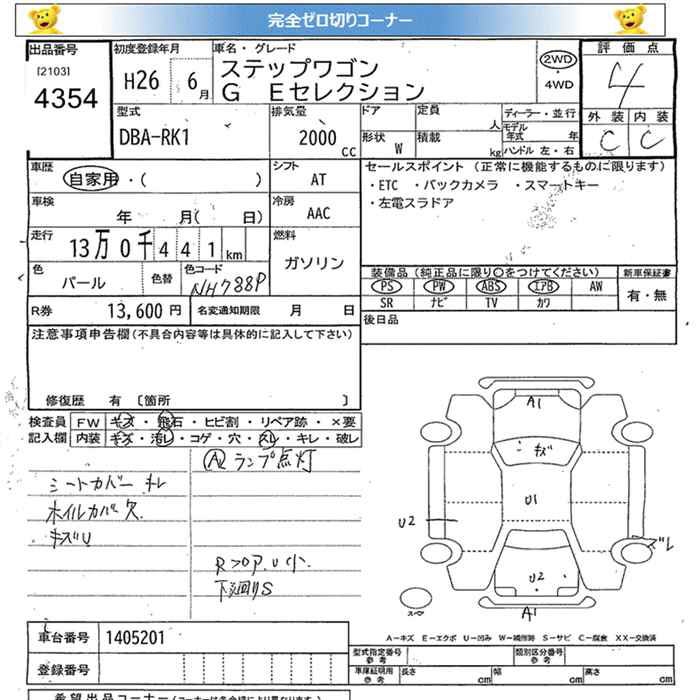 完全ゼロ切りコーナー
出品番号 初度登録年月 車名・グレード 評価点
[2103] 4354
H26 6月
ステップワゴン
G Eセレクション
2WD
4WD
4
型式 排気量 ドア 定員 人 ディーラー・並行 外装 内装
DBA-RK1 2000 CC
形状 W 積載 kg モデル年式 年 ハンドル 左・右
C C
車歴 自家用・( ) シフト AT
セールスポイント (正常に機能するものに限ります)
・ETC ・バックカメラ ・スマートキー
・左電スラドア
車検 年 月( 日) 冷房 AAC
走行 13万0千441km 燃料 ガソリン
色 パール 色替 色コード NH788P
装備品 (純正品に限り○をつけてください) 新車保証書
PS PW ABS エアB AW 有・無
SR ナビ TV カワ
R券 13,600円 名変通知期限 月 日
後日品
注意事項申告欄(不具合内容等は具体的に記入して下さい)
修復歴 有 [箇所 ]
検査員 FW キズ・飛石・ヒビ割・リペア跡・×要
記入欄 内装 キズ・汚レ・コゲ・穴・スレ・キレ・破レ
ランプ点灯
シートカバー キレ
ホイルカバー欠
キズU
RフロアU小
下廻りS
A1
キズ
U1
U2
ズレ
U2
スペア
A1
A-キズ E-エクボ U-凹み W-補修跡 S-サビ C-腐食 XX-交換済
車台番号 1405201
型式指定番号 参考 類別区分番号 参考
登録番号
車庫証明用 参考 長さ cm 幅 cm 高さ cm
希望出品コーナー